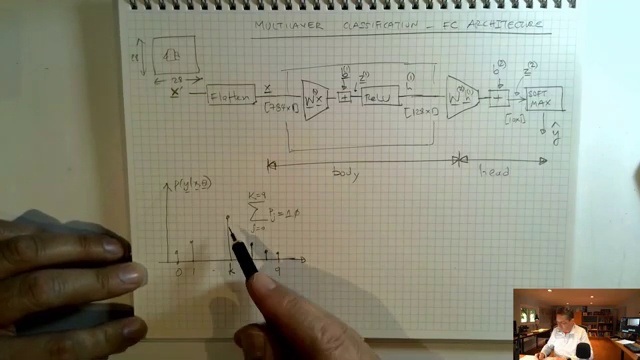 MULTILAYER CLASSIFICATION - FC ARCHITECTURE
28
28
x'
Flatten
x
[784x1]
W⁽¹⁾x
b⁽¹⁾
+
z⁽¹⁾
ReLU
h⁽¹⁾
[128x1]
W⁽²⁾h⁽¹⁾
b⁽²⁾
+
z⁽²⁾
[10x1]
SOFT
MAX
ŷ
body
head
p(y|x;θ)
K=9
Σ Pj = 1.0
j=0
0 1 . k 9